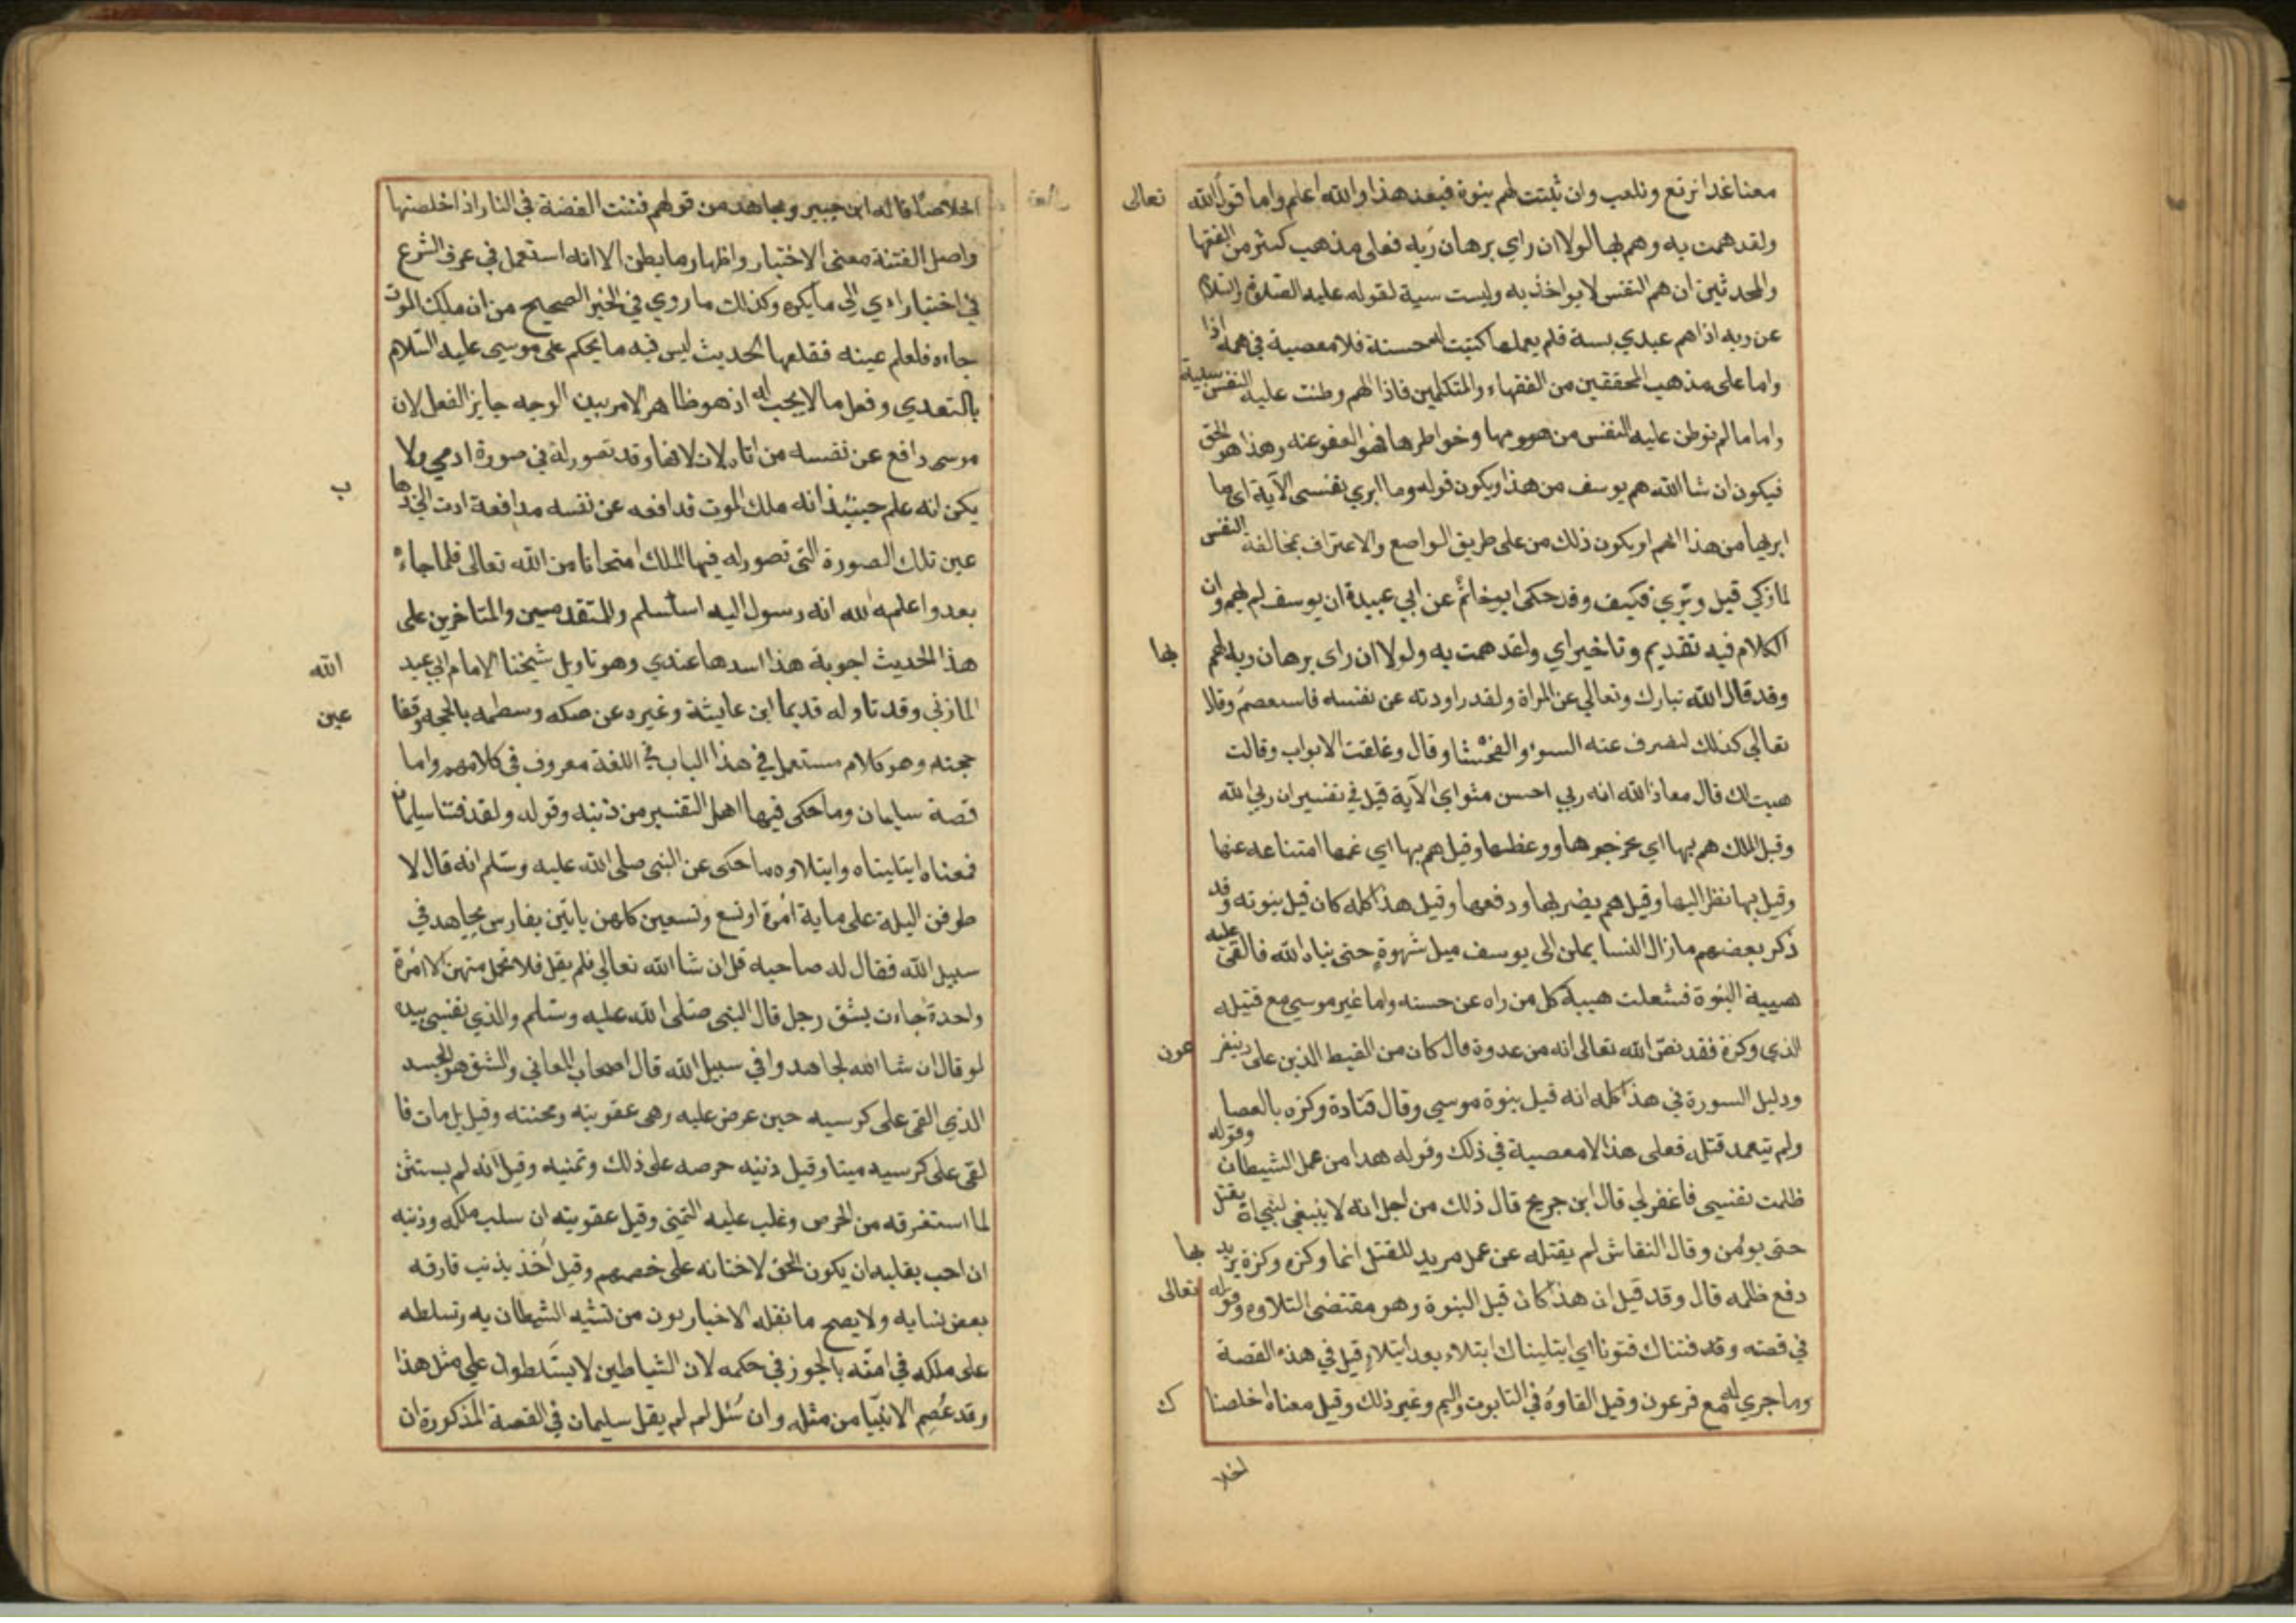 معنا غدا نرتع ونلعب وان ثبتت لهم بنوة فبعد هذا والله اعلم واما قول الله تعالى
ولقد همت به وهم بها لولا ان راي برهان ربه فعلى مذهب كثير من الفقها
والمحدثين ان هم النفس لا يواخذ به وليست سية لقوله عليه الصلوة والسلام
عن ربه اذا هم عبدي بسة فلم يعملها كتبت له حسنة فلا معصية في همه اذا
واما على مذهب المحققين من الفقهاء والمتكلمين فاذا الهم وطنت عليه النفس سيية
واما ما لم توطن عليه النفس من همومها وخواطرها فهو العفو عنه وهذا هو الحق
فيكون ان شا الله هم يوسف من هذا ويكون قوله وما ابري نفسى الآية اى ما
ابريها من هذا الهم او يكون ذلك من على طريق الواضع والاعتراف بمخالفة النفس
لما زكي قبل وبري فكيف وقد حكى ابو خاتم عن ابي عبيدة ان يوسف لم يهم وان
الكلام فيه تقديم وتاخير اي ولقد همت به ولولا ان راى برهان ربه لهم بها
وقد قال الله تبارك وتعالي عن المراة ولقد راودته عن نفسه فاستعصم وقال
تعالي كذلك لنصرف عنه السوء والفحشا وقال وغلقت الابواب وقالت
هيت لك قال معاذ الله انه ربي احسن مثواي الآية قيل في تفسيران ربي الله
وقيل الملك هم بها اي بخرجرها ووعظها وقيل هم بها اي غمها امتناعه عنها
وقيل بها نظر اليها وقيل هم بضربها ودفعها وقيل هذا كله كان قبل بنوته وقد
ذكر بعضهم ما زال النسا يملن الى يوسف ميل شهوة حتى نباه الله فالقى عليه
هيبة النبوة فشعلت هيبة كل من راه عن حسنه واما غير موسي مع قتيله
الذي وكزه فقد نص الله تعالى انه من عدوه قال كان من القبط الذين على دين فرعون
ودليل السورة في هذا كله انه قبل بنوة موسي وقال قتادة وكزه بالعصا
ولم يتعمد قتله فعلى هذا لا معصية في ذلك وقوله هدا من عمل الشيطان وقوله
ظلمت نفسي فاغفر لي قال ابن جريج قال ذلك من اجل انه لا ينبغي لنبي اة يقتل
حتى يومن وقال النقاش لم يقتله عن عمل مريد للقتل انما وكزه وكزة يريد بها
دفع ظلمه قال وقد قيل ان هذا كان قبل النبوة وهو مقتضى التلاوه وقوله تعالى
في قصته وقد فتناك فتونا اي ابتليناك ابتلاء بعد ابتلاء قيل في هذه القصة
وما جري له مع فرعون وقيل القاوه في التابوت واليم وغير ذلك وقيل معناه اخلصناك
اخلا
اخلاصا قاله ابن جبير ومجاهد من قولهم فتنت الفضة في النار اذا خلصتها
واصل الفتنة معنى الاختبار واظهار ما بطن الا انه استعمل في عرف الشرع
في اختبار ادي الي ما يكره وكذلك ما روي في الخبر الصحيح من ان ملك الموت
جاءه فلعلم عينه فقلعها الحديث ليس فيه ما يحكم على موسى عليه السلام
بالتعدي وفعل ما لا يجب له اذ هو ظاهر الامر بين الوجه جايز الفعل لان
موسى دافع عن نفسه من اتاه لاتلافها وقد تصور له في صورة ادمي ولا
يكن انه علم حينئذ انه ملك الموت فدافعه عن نفسه مدافعة ادت الي ذهاب
عين تلك الصورة التى تصور له فيها الملك امتحانا من الله تعالى فلما جاءه
بعد واعلمه الله انه رسول اليه استسلم وللمتقدمين والمتاخرين على
هذا الحديث اجوبة هذا اسدها عندي وهو تاويل شيخنا الامام ابي عبد الله
المازني وقد تاوله قديما ابن عايشة وغيره عن صكه ولطمه بالحجة وفقا عين
حجته وهو كلام مستعمل في هذا الباب في اللغة معروف في كلامهم واما
قصة سليمان وما حكى فيها اهل التفسير من ذنبه وقوله ولقد فتنا سليمان
فمعناه ابتليناه وابتلاوه ما حكى عن النبى صلى الله عليه وسلم انه قال لا
طوفن الليلة على ماية امرة او تسع وتسعين كلهن ياتين بفارس يجاهد في
سبيل الله فقال له صاحبه قل ان شا الله تعالي فلم يقل فلا تحمل منهن الا امرة
واحدة جاءت بشق رجل قال النبى صلى الله عليه وسلم والذي نفسي بيده
لو قال ان شا الله لجاهدوا في سبيل الله قال اصحاب المعاني والشق هو الجسد
الذي القى على كرسيه حين عرض عليه وهى عقوبته ومحنته وقيل بل مات فا
لقى على كرسيه ميتا وقيل ذنبه حرصه على ذلك وتمنيه وقيل انه لم يستثن
لما استغرقه من الحرص وغلب عليه التمنى وقيل عقوبته ان سلب ملكه وذنبه
ان احب بقلبه ان يكون الحق لاختانه على خصمهم وقيل اخذ بذنب قارفه
بعض نسايه ولا يصح ما نقله الاخباريون من تشبه الشيطان به وتسلطه
على ملكه في امته بالجوز في حكمه لان الشياطين لا يسلطون على مثل هذا
وقد عصم الانبيا من مثله وان سئل لم لم يقل سليمان في القصة المذكورة ان